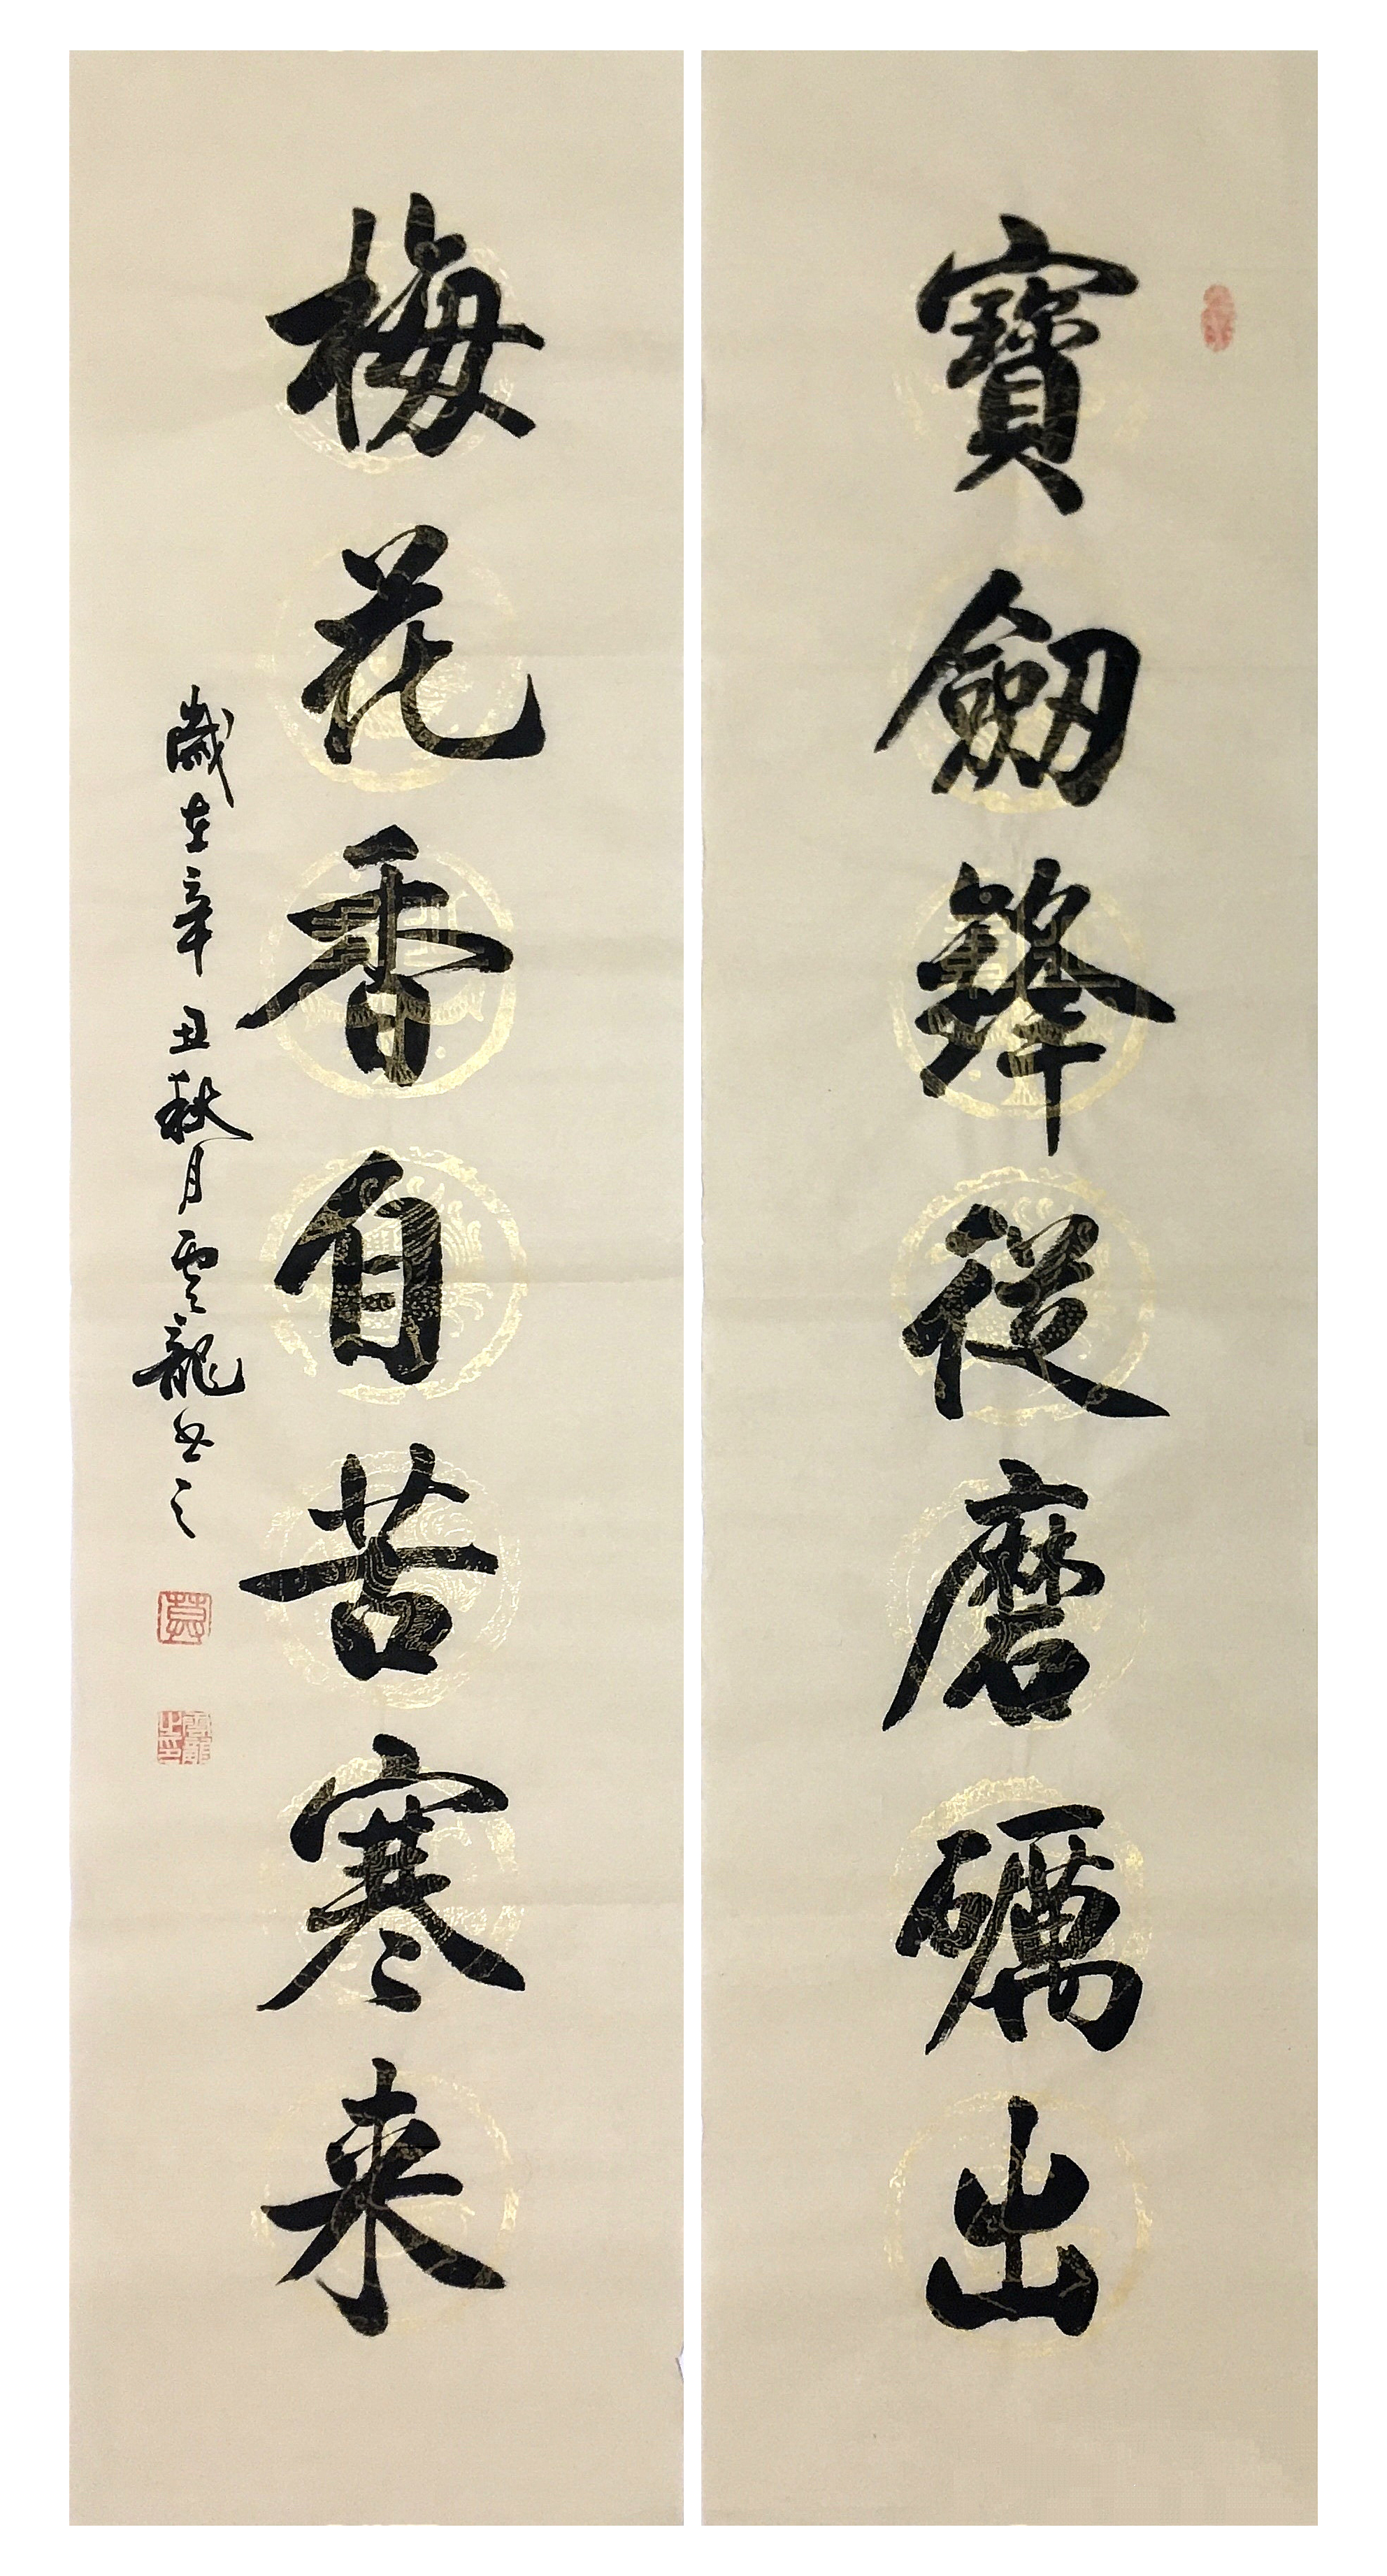 寶劍鋒從磨礪出
梅花香自苦寒来
歲在辛丑秋月雲龍書之